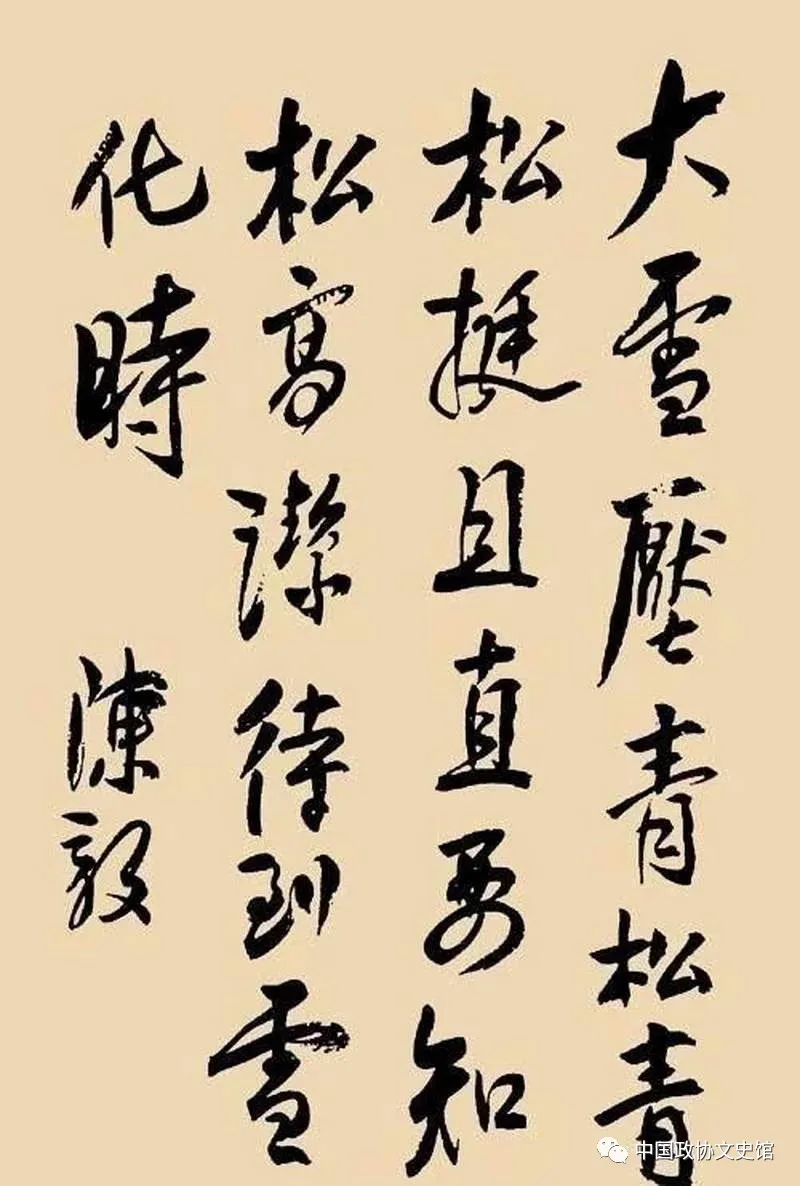 大雪壓青松青
松挺且直要知
松高潔待到雪
化時
陳毅
中国政协文史馆